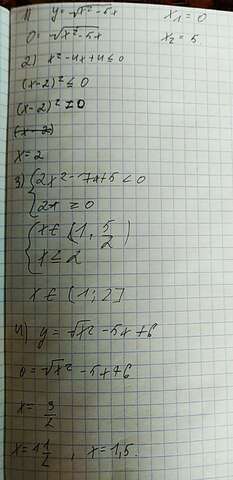 1) y = √x²-5x    x₁ = 0
0 = √x²-5x    x₂ = 5
2) x²-4x+4≤0
(x-2)² ≤ 0
(x-2)² ≠ 0
(x-2)
x=2
3) {2x²-7x+5<0
{2x ≥ 0
{x∈(1, 5/2)
{x≤2
x∈(1;2]
4) y = √x²-5x+6
0 = √x²-5x+6
x = 3/2
x = 11/2, x=1,5.